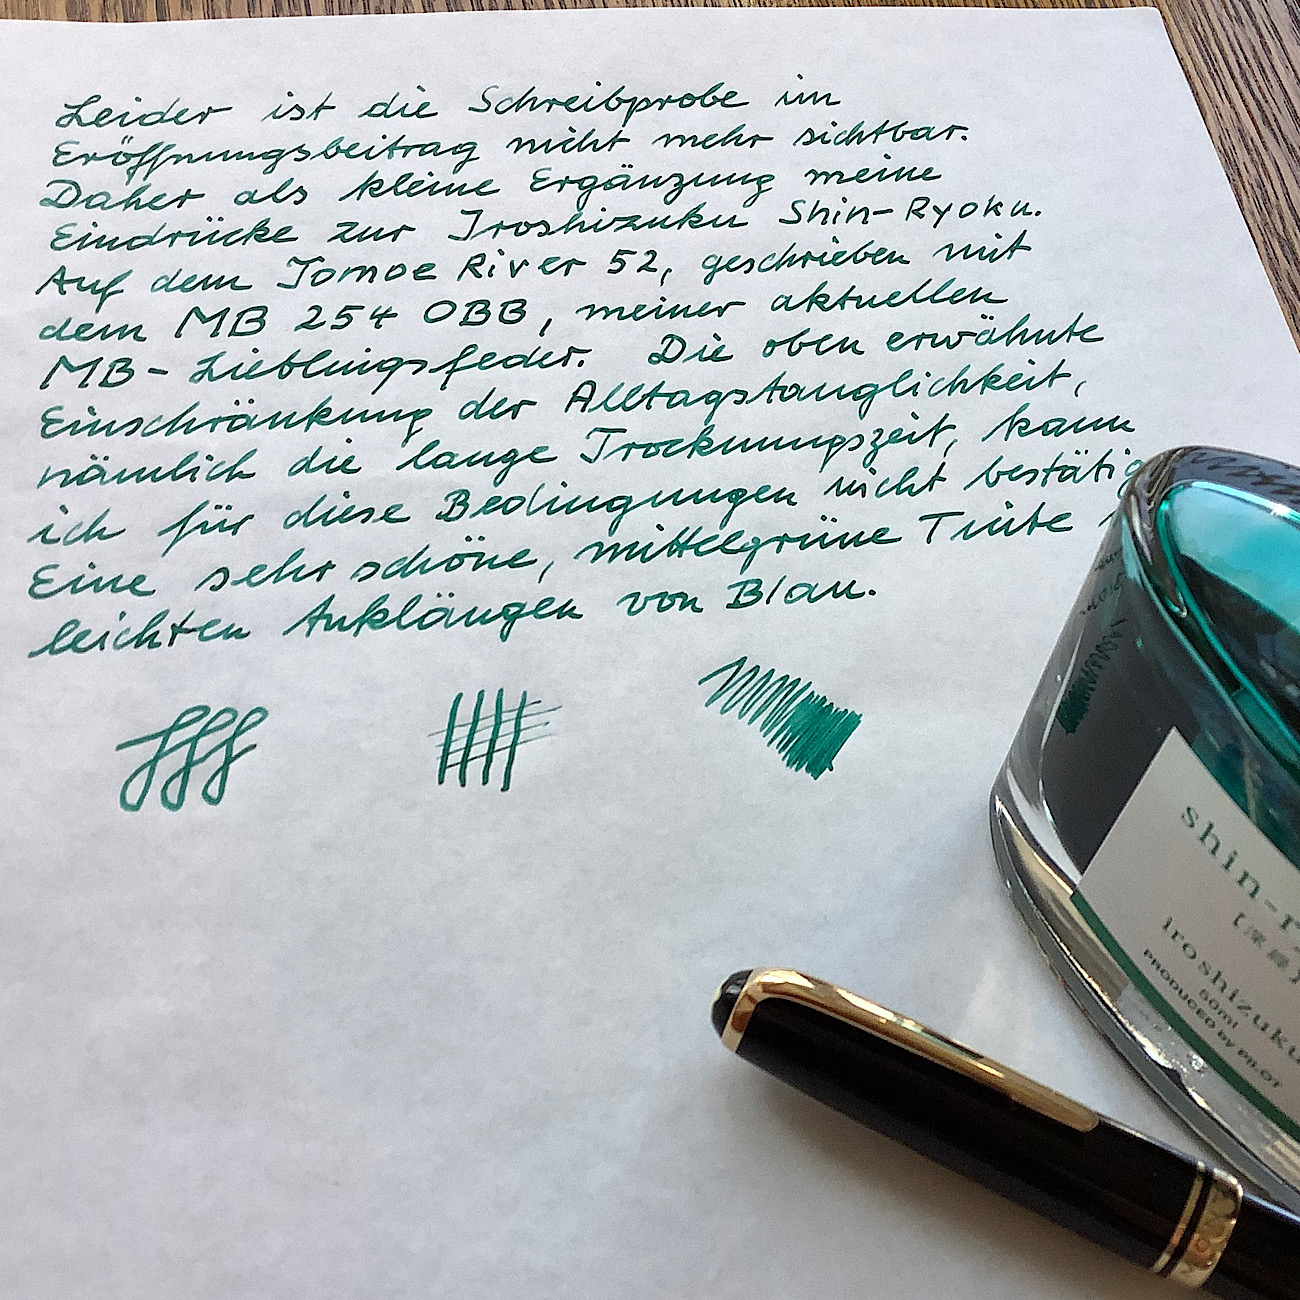 Leider ist die Schreibprobe im
Eröffnungsbeitrag nicht mehr sichtbar.
Daher als kleine Ergänzung meine
Eindrücke zur Iroshizuku Shin-Ryoku.
Auf dem Tomoe River 52, geschrieben mit
dem MB 254 OBB, meiner aktuellen
MB-Lieblingsfeder. Die oben erwähnte
Einschränkung der Alltagstauglichkeit,
nämlich die lange Trocknungszeit, kann
ich für diese Bedingungen nicht bestätig
Eine sehr schöne, mittelgrüne Tinte
leichten Anklängen von Blau.
shin-r
[深緑]
iroshizuku
50ml
PRODUCED by PILOT